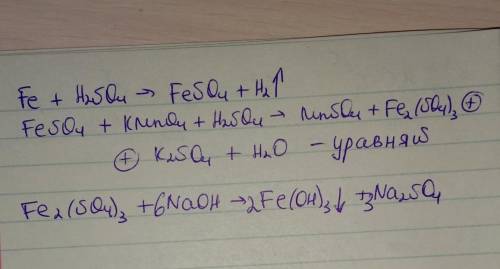 Fe + H2SO4 → FeSO4 + H2↑
FeSO4 + KMnO4 + H2SO4 → MnSO4 + Fe2(SO4)3 ⊕
⊕ K2SO4 + H2O – уравняй
Fe2(SO4)3 + 6NaOH → 2Fe(OH)3↓ + 3Na2SO4